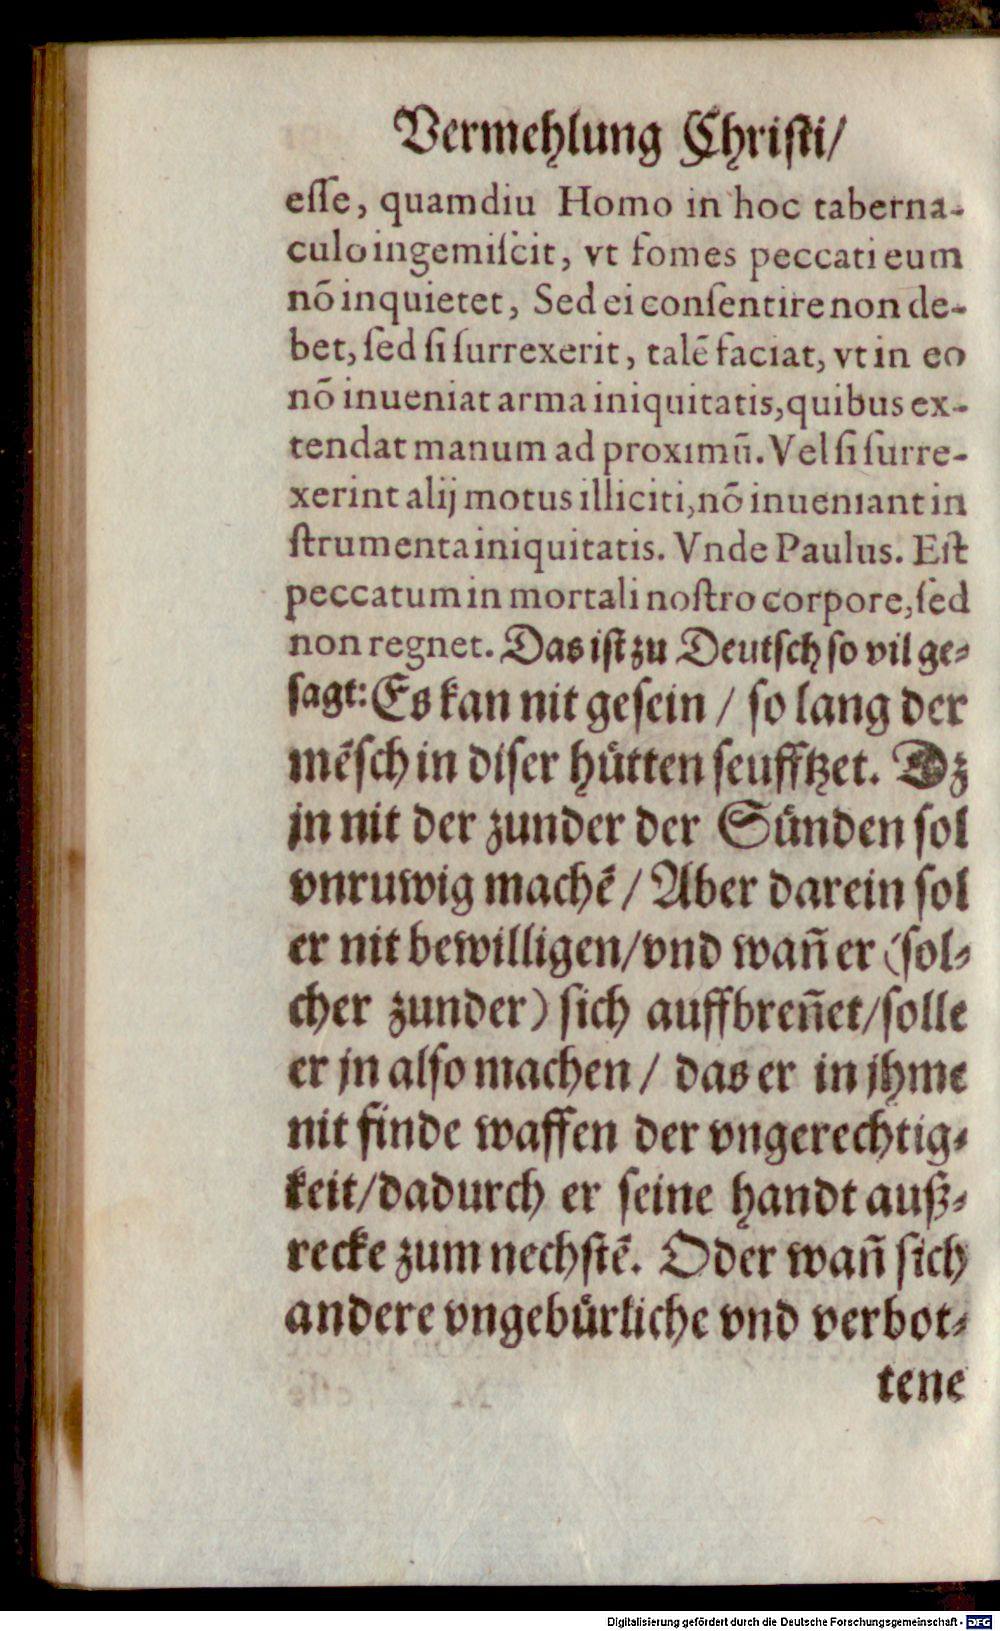 Vermehlung Christi/
eſſe, quamdiu Homo in hoc taberna-
culo ingemiſcit, vt fomes peccati eum
nō inquietet, Sed ei conſentire non de-
bet, ſed ſi ſurrexerit, talē faciat, vt in eo
nō inueniat arma iniquitatis, quibus ex-
tendat manum ad proximū. Vel ſi ſurre-
xerint alij motus illiciti, nō inueniant in
ſtrumenta iniquitatis. Vnde Paulus. Eſt
peccatum in mortali noſtro corpore, ſed
non regnet. Das iſt zu Deutſch ſo vil ge-
ſagt: Es kan nit geſein / ſo lang der
mēſch in diſer hütten ſeufftzet. Dz
jn nit der zunder der Sünden ſol
vnruwig machē / Aber darein ſol
er nit bewilligen/vnd wañ er (ſol-
cher zunder) ſich auffbreñet/ſolle
er jn alſo machen / das er in jhme
nit finde waffen der vngerechtig-
keit/dadurch er ſeine handt auß-
recke zum nechſtē. Oder wañ ſich
andere vngebürliche vnd verbot-
tene
Digitalisierung gefördert durch die Deutsche Forschungsgemeinschaft - DFG